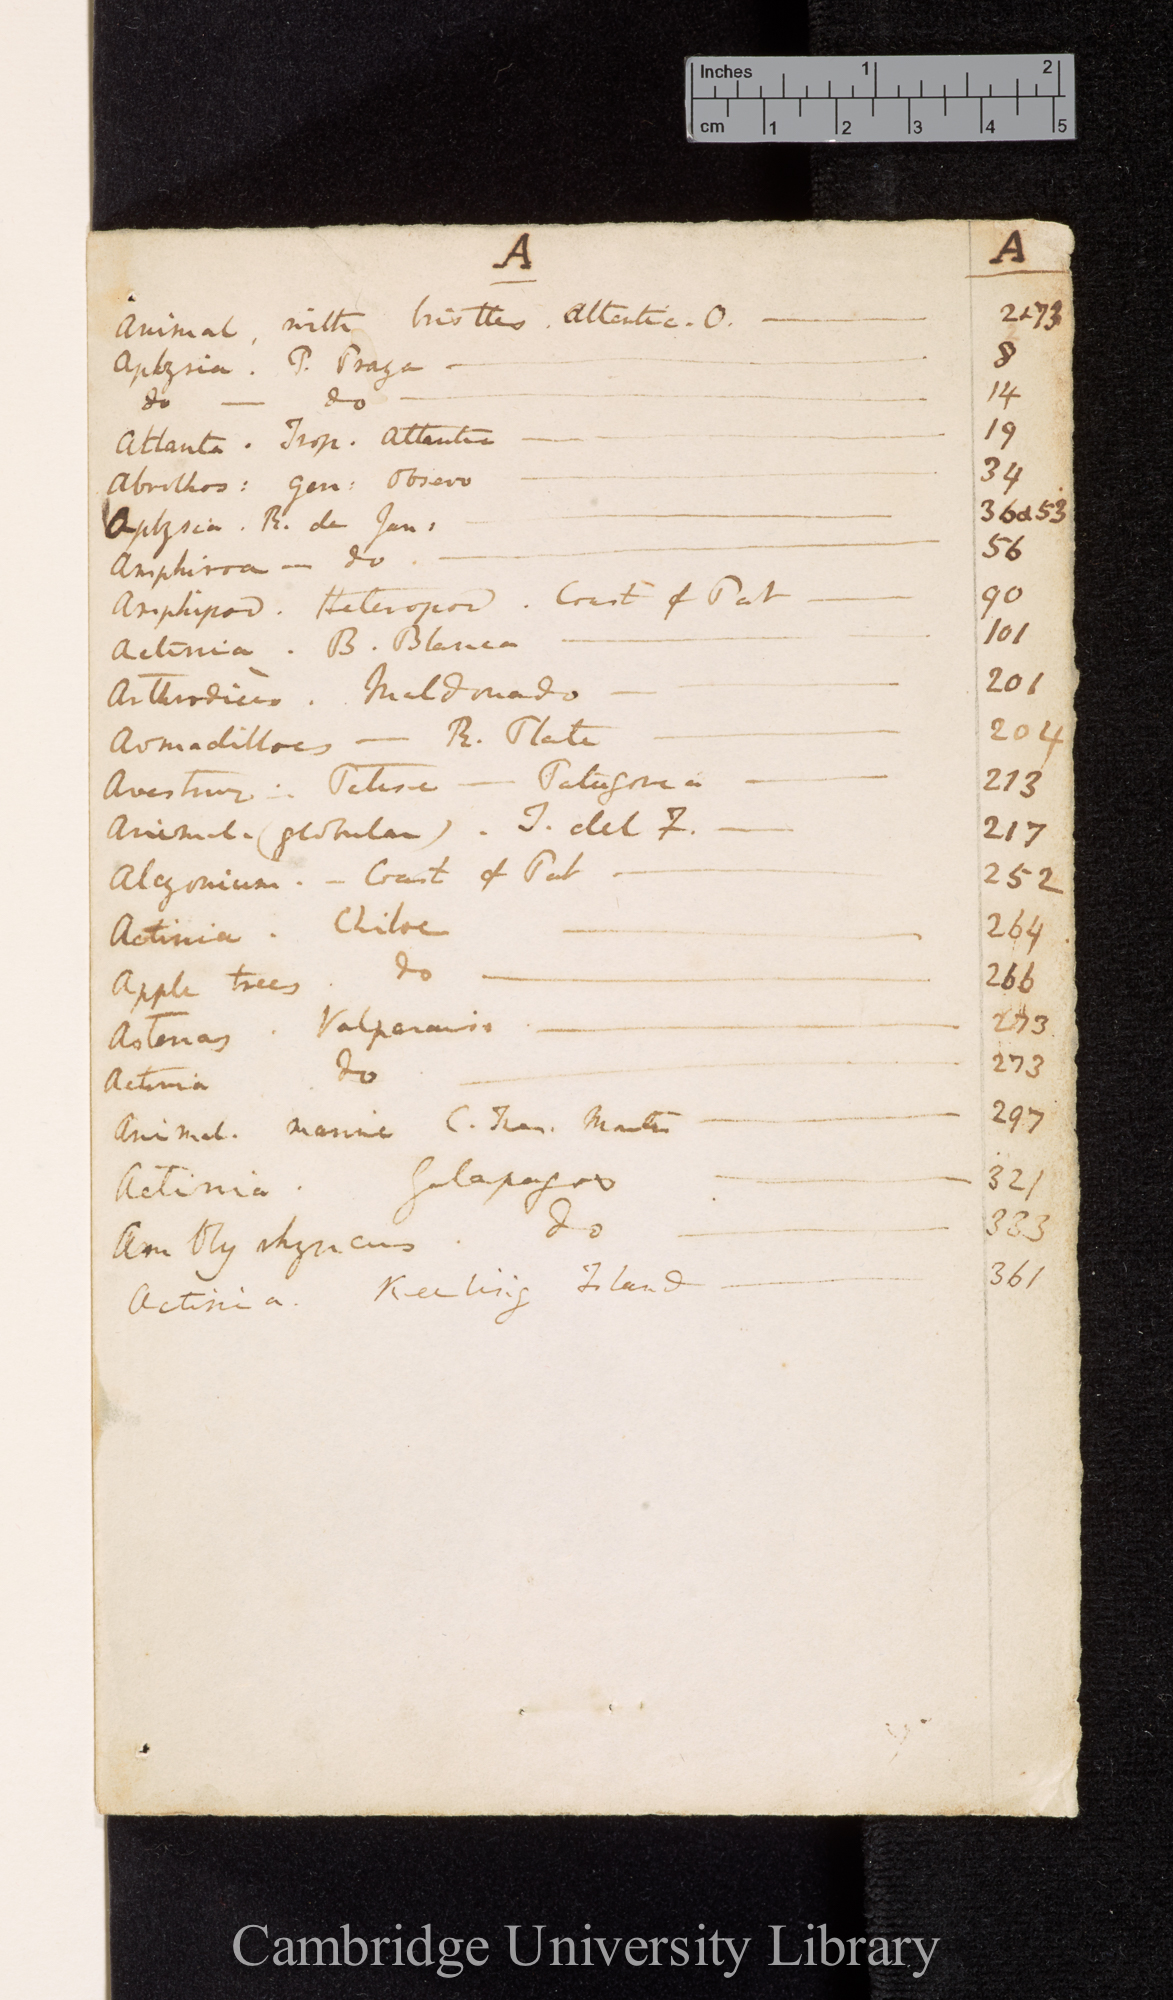 Inches 1 2
cm 1 2 3 4 5
A A
Animal, with bristles. Atlantic. O. — 2&73
Aplysia. P. Praya — 8
do — do — 14
Atlanta. Trop. Atlantic — 19
Abrolhos: gen: Observ — 34
Aplysia. R. de Jan: — 36&53
Amphiroa — do. — 56
Amphipod. Heteropod. Coast of Pat — 90
Actinia. B. Blanca — 101
Arthrodièes. Maldonado — 201
Armadilloes — R. Plata — 204
Avestruz: Petise — Patagonia — 213
Animal. (globular). T. del F. — 217
Alcyonium. — Coast of Pat — 252
Actinia. Chiloe — 264
Apple trees. do — 266
Asterias. Valparaiso — 273
Actinia do — 273
Animal. marine C. Tres. Montes — 297
Actinia. Galapagos — 321
Amblyrhyncus. do — 333
Actinia. Keeling Island — 361
Cambridge University Library